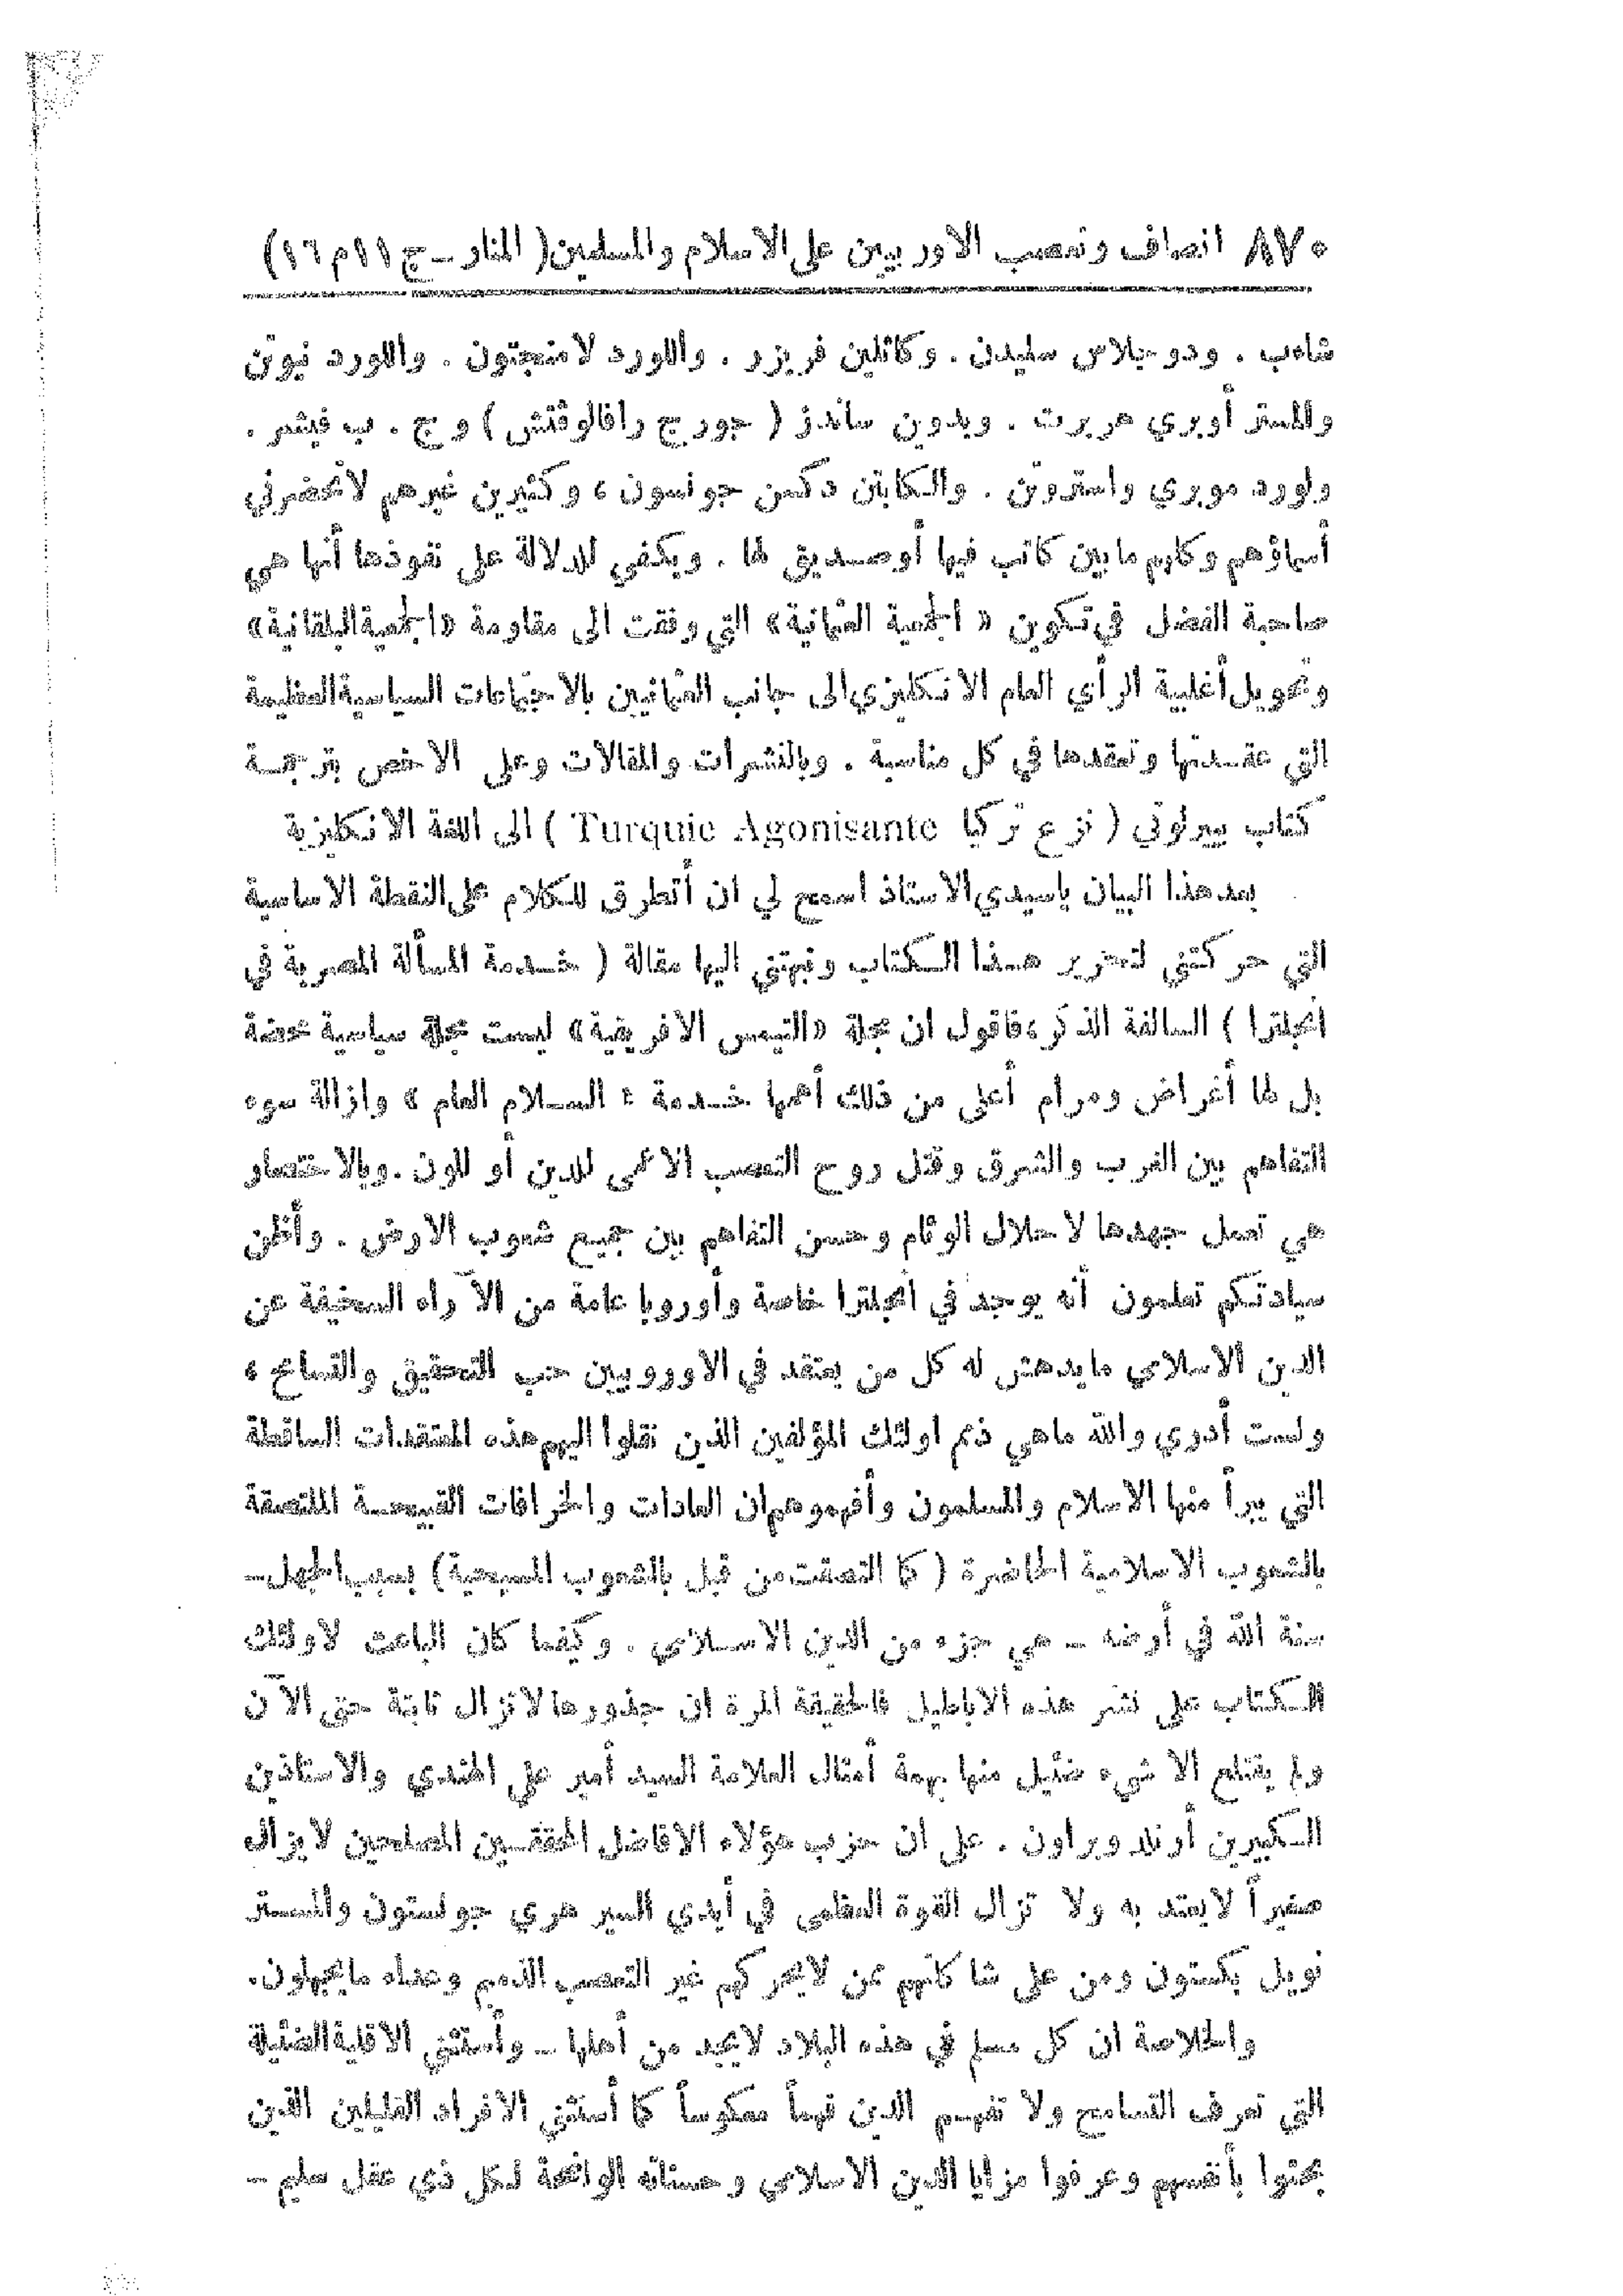 ٨٧٠ انصاف وتعصب الاوربيين على الاسلام والمسلمين (المنار ـ ج ١١ م ١٦)
شاهب . ودوجلاس سليدن . وكاثلين فريزر . واللورد لامنجتون . واللورد نيوتن
والمستر أوبري هربرت . وبدوين ساندز ( جورج رافالوفتش ) و ج . ب فيشر .
ولورد موبري واسترون . والكابتن دكسن جونسون ، وكثيرين غيرهم لاتحضرني
أسماؤهم وكلهم مابين كاتب فيها أوصديق لها . ويكفي للدلالة على نفوذها أنها هي
صاحبة الفضل في تكوين « الجمعية العثمانية » التي وفقت الى مقاومة «الجمعية البلقانية»
وتحويل أغلبية الرأي العام الانكليزي الى جانب العثمانيين بالاجتماعات السياسية العظيمة
التي عقدتها وتعقدها في كل مناسبة . وبالنشرات والمقالات وعلى الاخص بترجمة
كتاب بييرلوتي ( نزع تركيا Turquie Agonisante ) الى اللغة الانكليزية
بعد هذا البيان ياسيدي الاستاذ اسمح لي ان أتطرق للكلام على النقطة الاساسية
التي حركتني لتحرير هذا الكتاب ونبهتني اليها مقالة ( خدمة المسألة المصرية في
انجلترا ) السالفة الذكر ، فاقول ان مجلة «التيمس الافريقية» ليست مجلة سياسية محضة
بل لها أغراض ومرام أعلى من ذلك أهمها خدمة « السلام العام » وازالة سوء
التفاهم بين الغرب والشرق وقتل روح التعصب الاعمى للدين أو للون . وبالاختصار
هي تعمل جهدها لاحلال الوئام وحسن التفاهم بين جميع شعوب الارض . وأظن
سيادتكم تعلمون أنه يوجد في انجلترا خاصة وأوروبا عامة من الآراء السخيفة عن
الدين الاسلامي مايدهش له كل من يعتقد في الاوروبيين حب التحقيق والتسامح ،
ولست أدري والله ماهي ذمم اولئك المؤلفين الذين نقلوا اليهم هذه المعتقدات الساقطة
التي يبرأ منها الاسلام والمسلمون وأفهموهم ان العادات والخرافات القبيحة الملتصقة
بالشعوب الاسلامية الحاضرة ( كما التصقت من قبل بالشعوب المسيحية ) بسبب الجهل ـ
سنة الله في أرضه ـ هي جزء من الدين الاسلامي . وكيفما كان الباعث لاولئك
الكتاب على نشر هذه الاباطيل فالحقيقة المرة ان جذورها لاتزال ثابتة حتى الآن
ولم يقتلع الا شيء ضئيل منها بهمة أمثال العلامة السيد أمير علي الهندي والاستاذين
الكبيرين أرنلد وبراون . على ان حزب هؤلاء الافاضل المحققين المصلحين لايزال
صغيراً لايعتد به ولا تزال القوة العظمى في أيدي السير هري جونستون والمستر
نويل بكستون ومن على شاكلتهم ممن لايحركهم غير التعصب الذميم وعداء مايجهلون.
والخلاصة ان كل مسلم في هذه البلاد لايجد من أهلها ـ وأستثني الاقلية الضئيلة
التي تعرف التسامح ولا تفهم الدين فهماً معكوساً كما أستثني الافراد القليلين الذين
بحثوا بأنفسهم وعرفوا مزايا الدين الاسلامي وحسناته الواضحة لكل ذي عقل سليم ـ